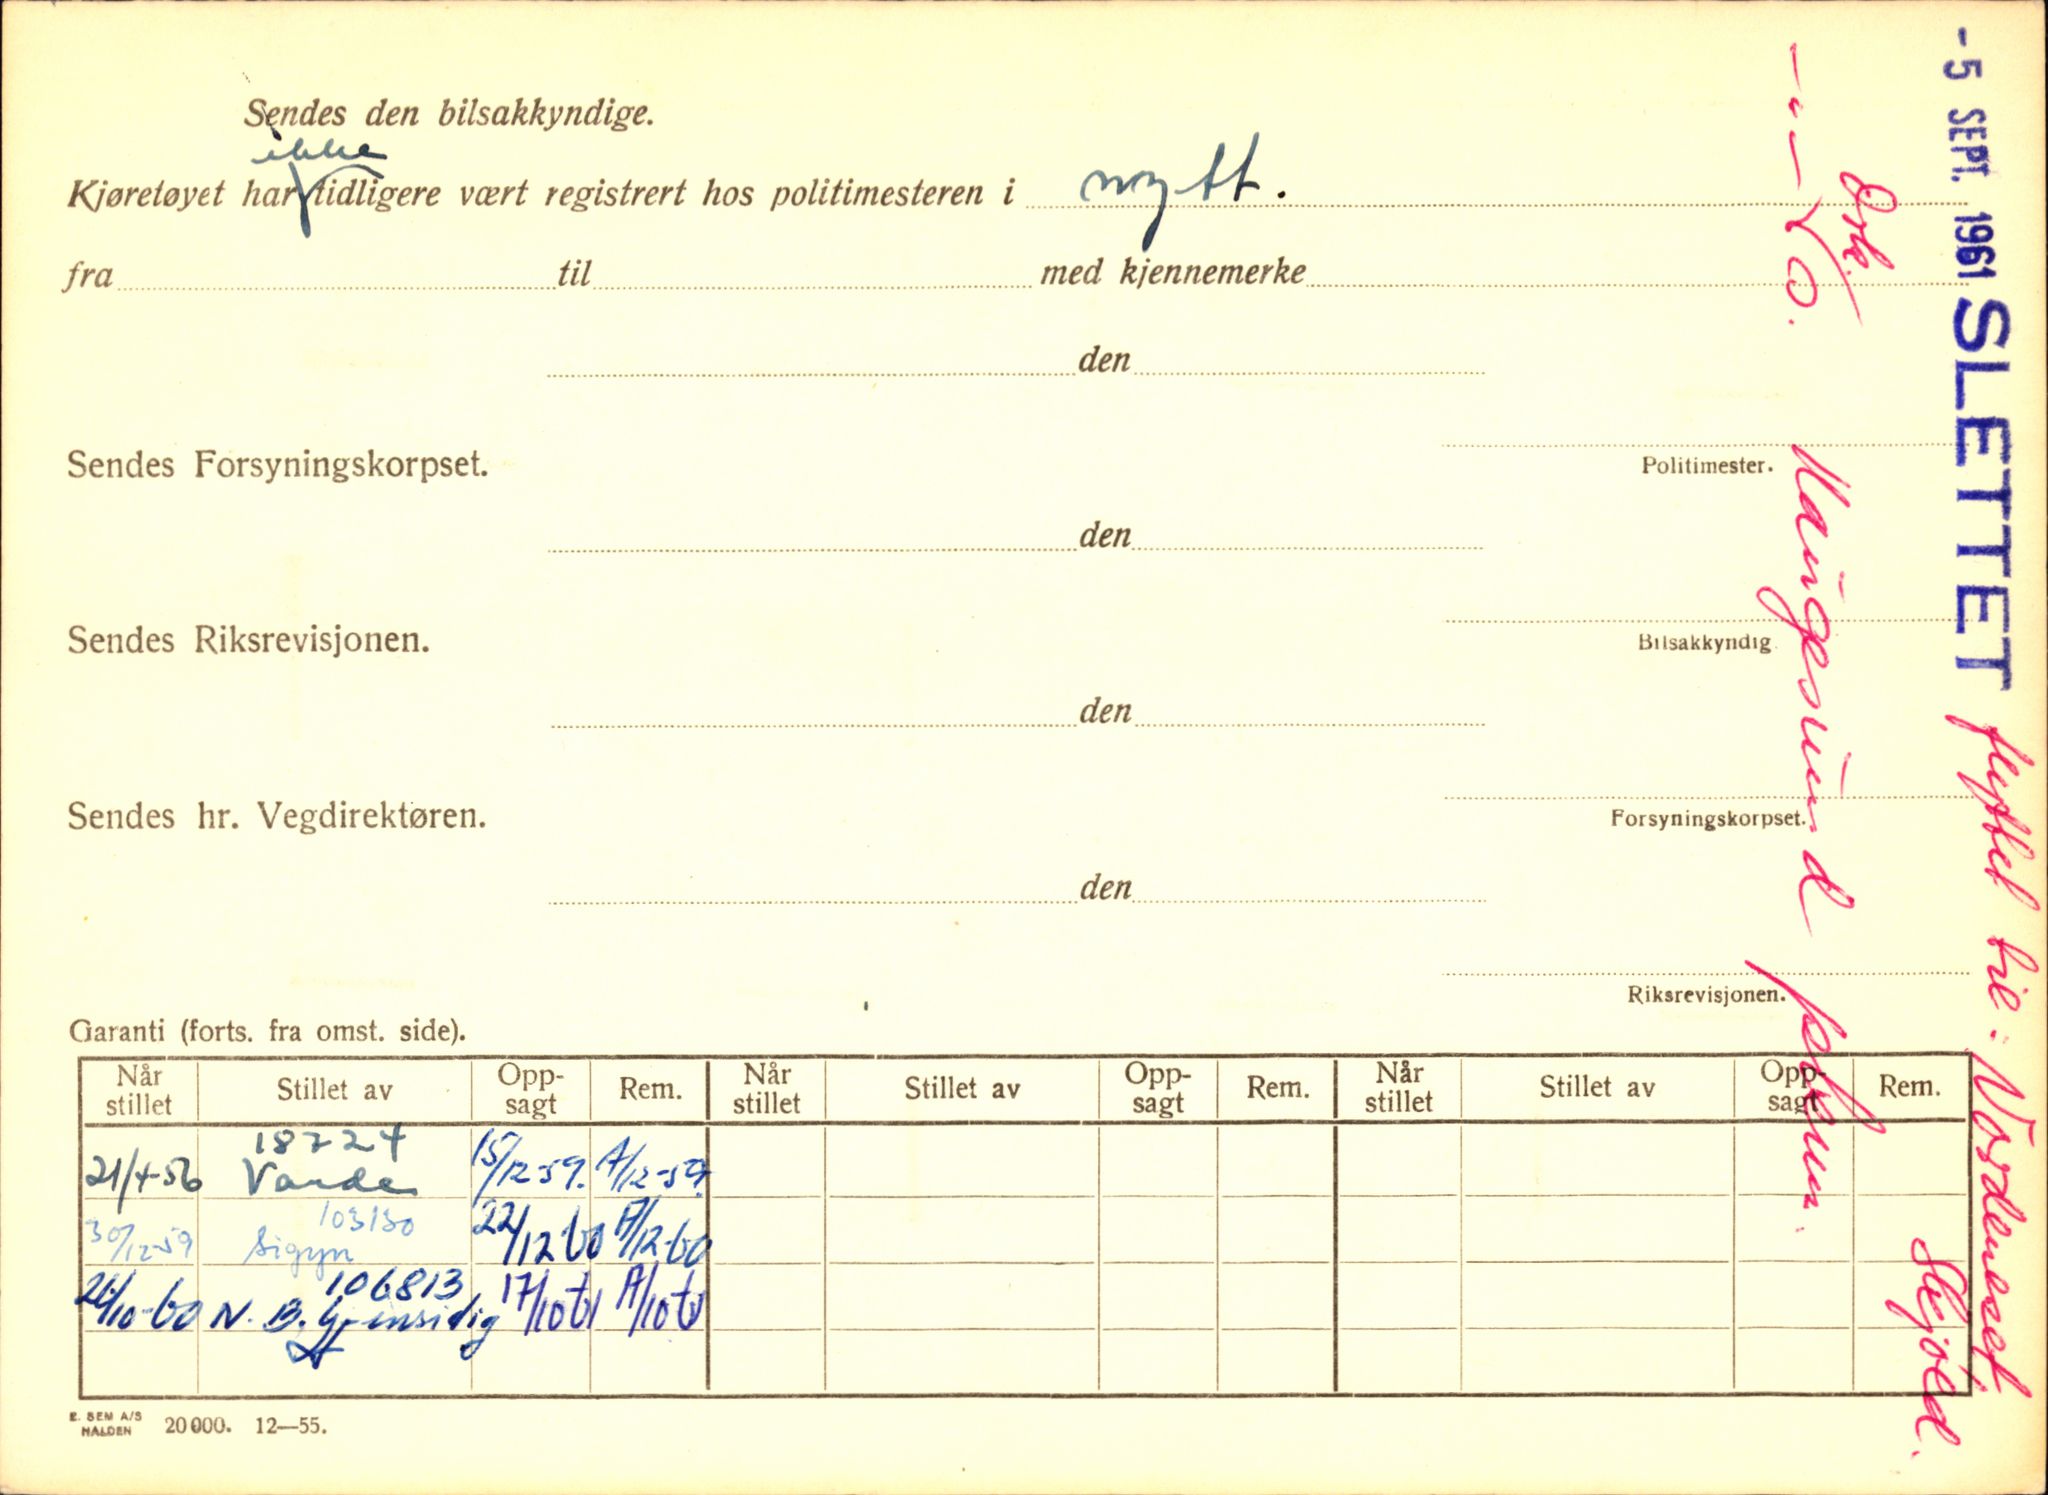 Sendes den bilsakkyndige.
ikke
Kjøretøyet har tidligere vært registrert hos politimesteren i nytt.
fra til med kjennemerke
den
Politimester.
Sendes Forsyningskorpset.
den
Bilsakkyndig
Sendes Riksrevisjonen.
den
Forsyningskorpset.
Sendes hr. Vegdirektøren.
den
Riksrevisjonen.
Garanti (forts. fra omst. side).
Når stillet Stillet av Opp-sagt Rem. Når stillet Stillet av Opp-sagt Rem. Når stillet Stillet av Opp-sagt Rem.
18724
21/4-56 Varde 15/12-59. A/12-59.
103130
30/12-59 Sigyn 22/12 60 A/12-60
106813
/10-60 N. B. Gjensidig 17/10 61 A/10 61
E. SEM A/S
HALDEN
20000. 12—55.
- 5 SEPT. 1961 SLETTET flyttet til: Nordeneset
Skjold.
Haugesund polkm.